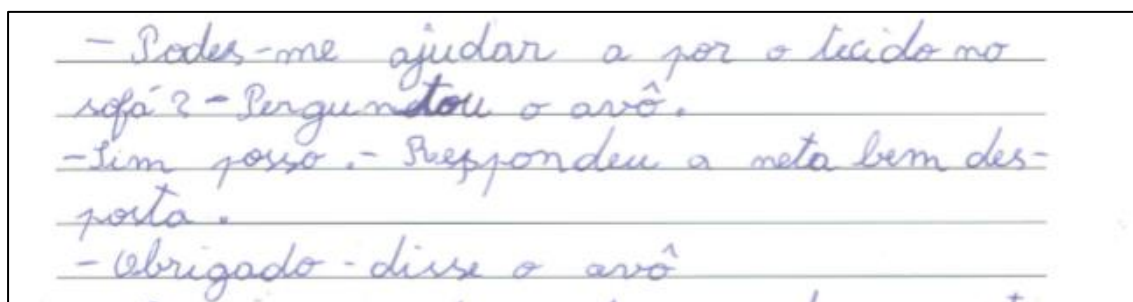 - Podes-me ajudar a por o tecido no
sofá? - Perguntou o avô.
- Sim posso. - Respondeu a neta bem des-
posta.
- Obrigado - disse o avô